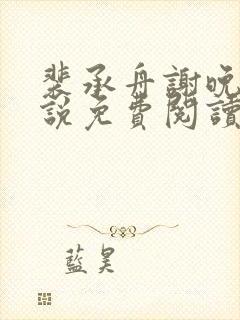 裴承舟謝晚
說免費閱讀
藍昊